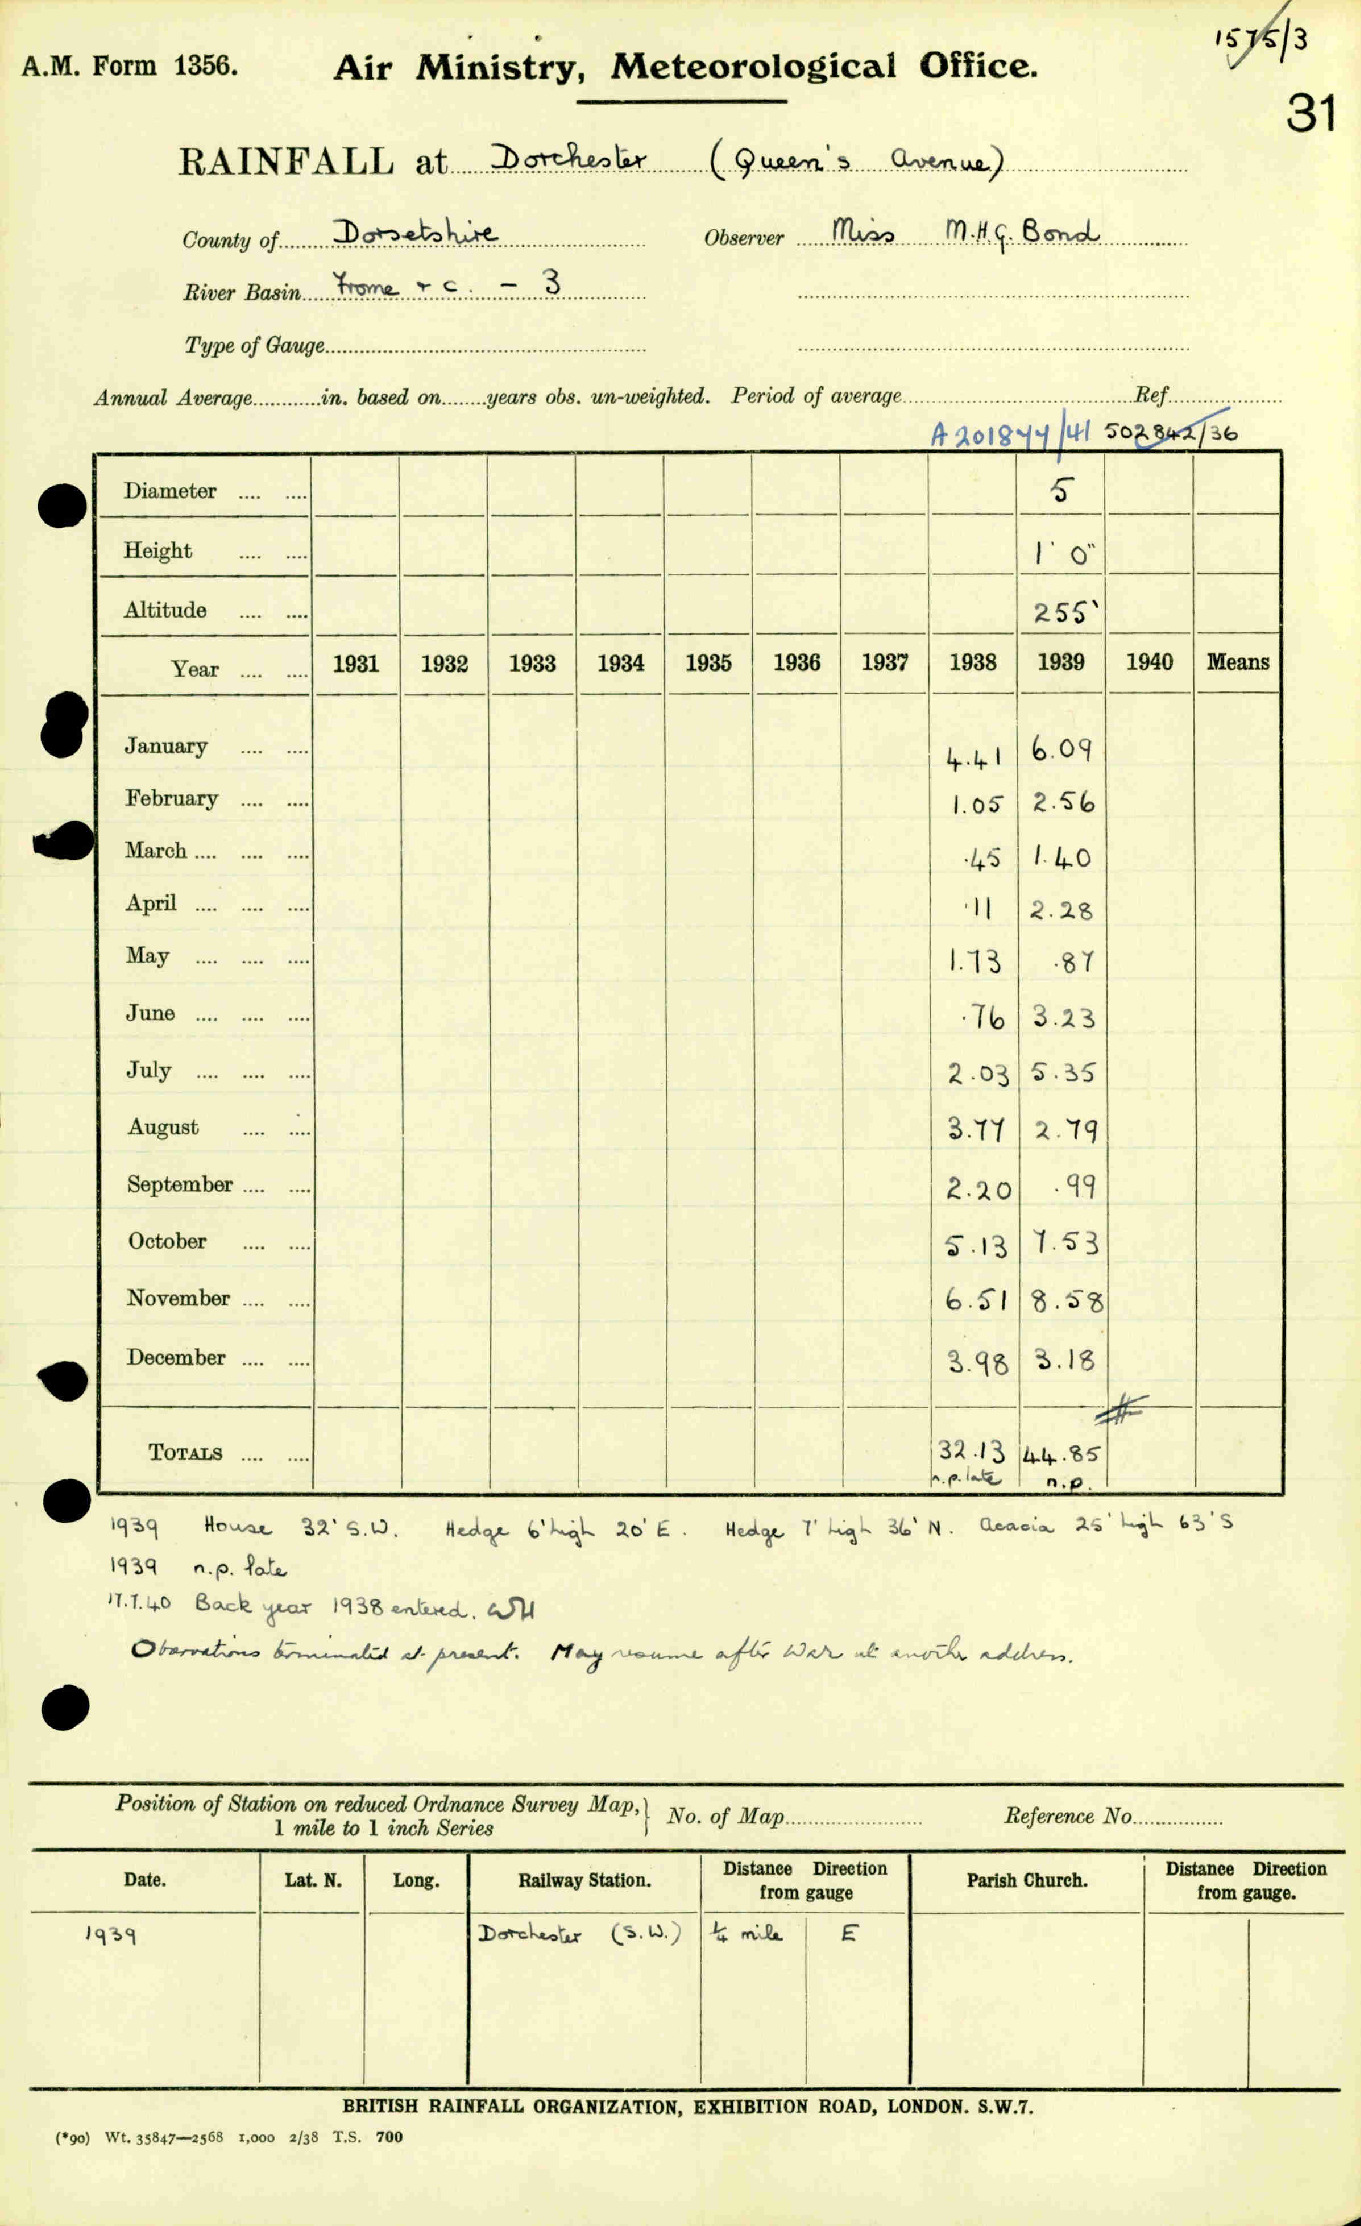 1575/3
A.M. Form 1356. Air Ministry, Meteorological Office.
31
RAINFALL at Dorchester (Queen's Avenue)
County of Dorsetshire Observer Miss M.H.G. Bond
River Basin Frome & c. - 3
Type of Gauge
Annual Average in. based on years obs. un-weighted. Period of average Ref
A201877/41 502842/36
Diameter 5
Height 1' 0"
Altitude 255'
Year 1931 1932 1933 1934 1935 1936 1937 1938 1939 1940 Means
January 4.41 6.09
February 1.05 2.56
March .45 1.40
April .11 2.28
May 1.73 .87
June .76 3.23
July 2.03 5.35
August 3.77 2.79
September 2.20 .99
October 5.13 7.53
November 6.51 8.58
December 3.98 3.18
TOTALS 32.13 44.85
n.p. late n.p.
1939 House 32' S.W. Hedge 6' high 20' E. Hedge 7' high 36' N. Acacia 25' high 63' S
1939 n.p. late
17.7.40 Back year 1938 entered. WH
Observations terminated at present. May resume after War at another address.
Position of Station on reduced Ordnance Survey Map, No. of Map Reference No
1 mile to 1 inch Series
Date. Lat. N. Long. Railway Station. Distance Direction from gauge Parish Church. Distance Direction from gauge.
1939 Dorchester (S.W.) 1/4 mile E
BRITISH RAINFALL ORGANIZATION, EXHIBITION ROAD, LONDON. S.W.7.
(*90) Wt. 35847—2568 1,000 2/38 T.S. 700